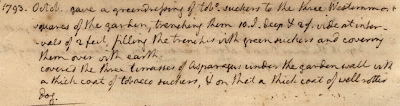 1793. Octob. gave a green dressing of tobo. suckers to the three Westernmost
squares of the garden, trenching them 10.I. deep & 2 f. wide at inter-
vals of 2 feet, filling the trenches with green suckers and covering
them over with earth.
covered the three terrasses of Asparagus under the garden wall with
a thick coat of tobacco suckers, & on that a thick coat of well rotted
dog.